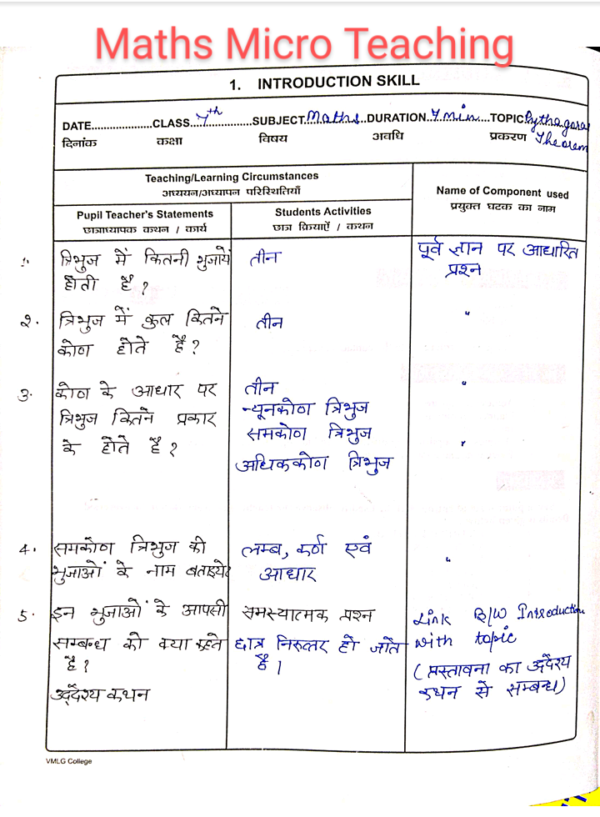 Maths Micro Teaching
1. INTRODUCTION SKILL
DATE....................CLASS..7th..................SUBJECT.Maths..DURATION.7min....TOPIC Pythagoras
दिनांक कक्षा विषय अवधि प्रकरण Theorem
Teaching/Learning Circumstances
अध्ययन/अध्यापन परिस्थितियाँ
Name of Component used
प्रयुक्त घटक का नाम
Pupil Teacher's Statements
छात्राध्यापक कथन / कार्य
Students Activities
छात्र क्रियाऐं / कथन
1. त्रिभुज में कितनी भुजायें तीन पूर्व ज्ञान पर आधारित
होती है? प्रश्न
2. त्रिभुज में कुल कितने तीन "
कोण होते है?
3. कोण के आधार पर तीन "
त्रिभुज कितने प्रकार न्यूनकोण त्रिभुज
के होते है? समकोण त्रिभुज "
अधिककोण त्रिभुज
4. समकोण त्रिभुज की लम्ब, कर्ण एवं "
भुजाओं के नाम बताइये। आधार
5. इन भुजाओं के आपसी समस्यात्मक प्रश्न Link B/W Introduction
सम्बन्ध को क्या कहते छात्र निरुत्तर हो जाते with topic
है? है। (प्रस्तावना का उद्देश्य
उद्देश्य कथन कथन से सम्बन्ध)
VMLG College